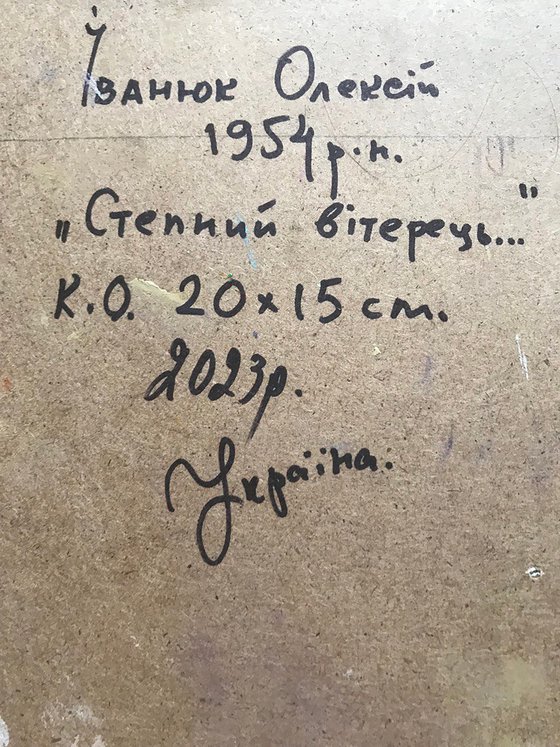 Іванюк Олексій
1954 р.н.
„Степний вітерець..."
К.О. 20х15 см.
2023р.
Україна.